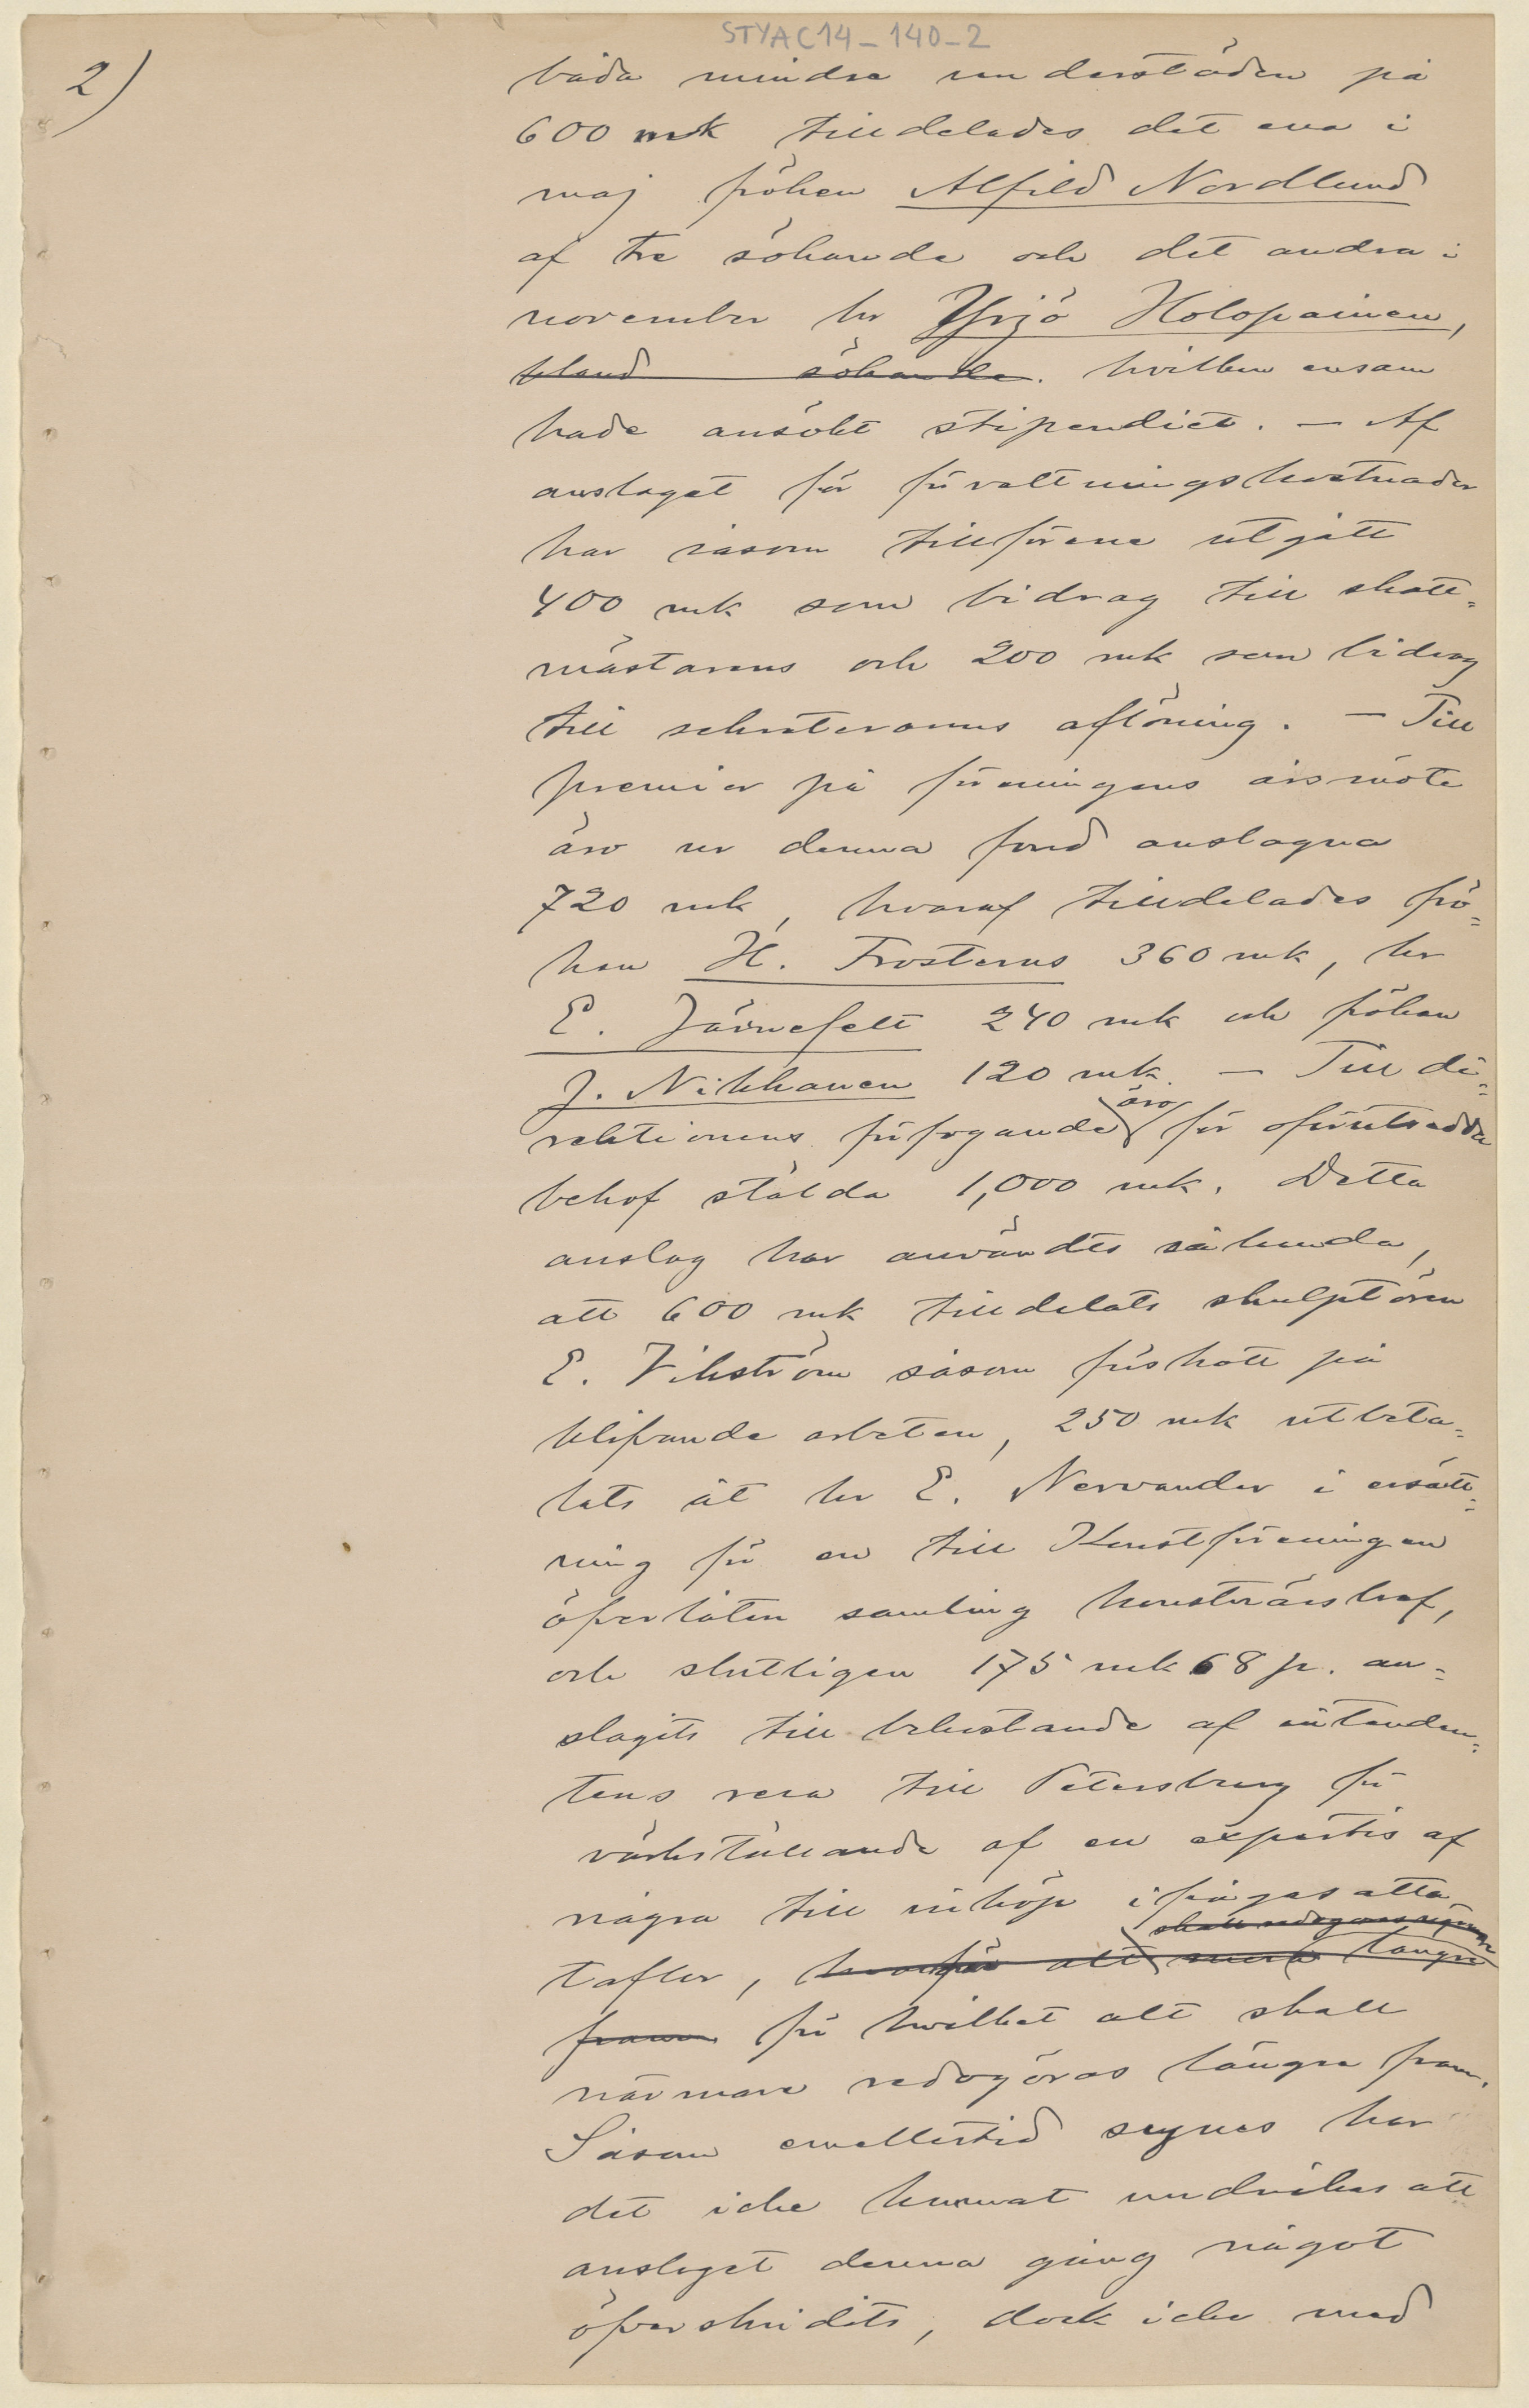 STYAC14-140-2
2)
båda mindre understöden på
600 mk tilldelades det ena i
maj fröken Alfild Nordlund
af tre sökande och det andra i
november hr Yrjö Holopainen,
bland sökande. hvilken ensam
hade ansökt stipendiet. — Af
anslaget för förvaltningskostnader
har såsom tillförene utgått
400 mk som bidrag till skatt=
mästarens och 200 mk som bidrag
till sekreterarens aflöning. — Till
premier på föreningens årsmöte
äro ur denna fond anslagna
720 mk, hvaraf tilldelades frö=
ken H. Frosterus 360 mk, hr
E. Järnefelt 240 mk och fröken
J. Nikkanen 120 mk. — Till di=
äro
rektionens förfogande för oförutsedda
behof stälda 1,000 mk. Detta
anslag har användts sålunda,
att 600 mk tilldelats skulptören
E. Vikström såsom förskott på
blifvande arbeten, 250 mk utbeta=
lats åt hr E. Nervander i ersätt=
ning för en till Konstföreningen
öfverlåten samling konstnärsbref,
och slutligen 175 mk 68 p. an=
slagits till bekostande af intenden=
tens resa till Petersburg för
värkställande af en expertis af
några till inköp ifrågasatta
skall redogöras
taflor, hvarför allt längre
fram för hvilket allt skall
närmare redogöras längre fram.
Såsom emellertid synes har
det icke kunnat undvikas att
anslaget denna gång något
öfverskridits, dock icke med